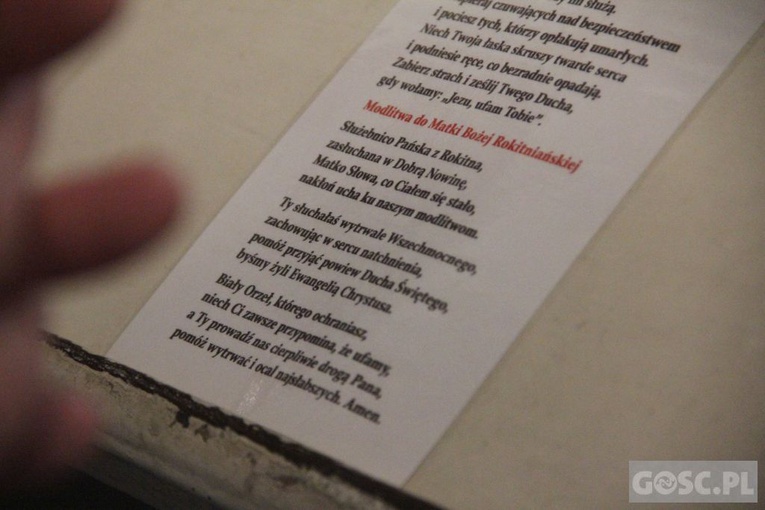 służą.
czuwających nad bezpieczeństwem
i pociesz tych, którzy opłakują umarłych.
Niech Twoja łaska skruszy twarde serca
i podniesie ręce, co bezradnie opadają.
Zabierz strach i ześlij Twego Ducha,
gdy wołamy: „Jezu, ufam Tobie”.
Modlitwa do Matki Bożej Rokitniańskiej
Służebnico Pańska z Rokitna,
zasłuchana w Dobrą Nowinę,
Matko Słowa, co Ciałem się stało,
nakłoń ucha ku naszym modlitwom.
Ty słuchałaś wytrwale Wszechmocnego,
zachowując w sercu natchnienia,
pomóż przyjąć powiew Ducha Świętego,
byśmy żyli Ewangelią Chrystusa.
Biały Orzeł, którego ochraniasz,
niech Ci zawsze przypomina, że ufamy,
a Ty prowadź nas cierpliwie drogą Pana,
pomóż wytrwać i ocal najsłabszych. Amen.
GOSC.PL